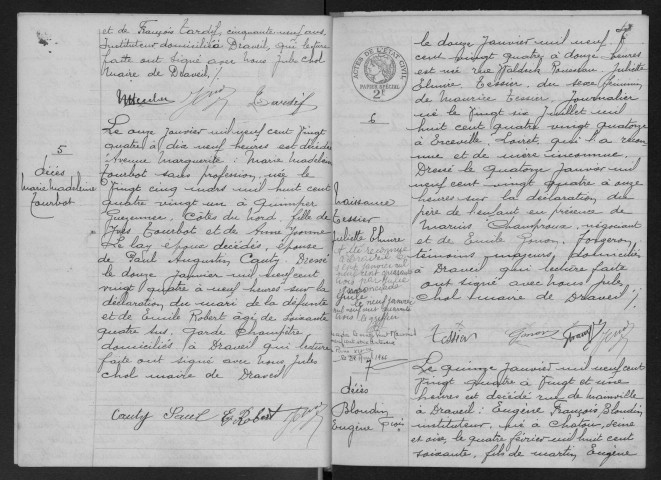 et de François Tardif, cinquante neuf ans
Instituteur domiciliés à Draveil, qui lecture
faite ont signé avec nous Jules Chol
Maire de Draveil /.
Tardif
5
Décès
Marie Madeleine
Tourbot
Le onze Janvier mil neuf cent vingt
quatre à dix neuf heures est décédée
Avenue Marguerite : Marie Madeleine
Tourbot sans profession, née le
vingt cinq mars mil huit cent
quatre vingt un à Quimper
Guezennec, Côtes du Nord, fille de
Yves Tourbot et de Anne Yvonne
Le lay époux décédés, épouse
de Paul Augustin Cauty Dressé
le douze Janvier mil neuf cent
vingt quatre à neuf heures sur la
déclaration du mari de la défunte
et de Emile Robert âgé de soixante
quatre ans, garde Champêtre,
domiciliés à Draveil qui lecture
faite ont signé avec nous Jules
Chol maire de Draveil
Cauty Paul E Robert
ACTES DE L'ÉTAT CIVIL
PAPIER SPÉCIAL
2F
6
Naissance
Tessier
Juliette Elmire
7
Décès
Blondin
Eugène
le douze Janvier mil neuf
cent vingt quatre à douze heures
est née rue Waldeck Rousseau Juliette
Elmire Tessier, du sexe féminin,
de Maurice Tessier, Journalier
né le vingt six Juillet mil
huit cent quatre vingt quatorze
à Erceville, Loiret, qui l'a recon
nue et de mère inconnue.
Dressé le quatorze Janvier mil
neuf cent vingt quatre à onze
heures sur la déclaration du
père de l'enfant en présence de
Marius Champroux, négociant
et de Emile Gonon, Forgeron,
témoins majeurs, domiciliés
à Draveil qui lecture faite
ont signé avec nous Jules
Chol maire de Draveil /.
Tessier Gonon
Le quinze Janvier mil neuf cent
vingt quatre à vingt et une
heures est décédé rue de Mainville
à Draveil : Eugène François Blondin
instituteur, né à Chatou, Seine
et Oise, le quatre février mil huit cent
soixante, fils de Martin Eugène